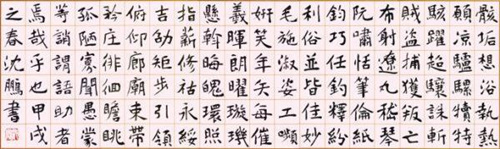 骸垢想浴執熱
願涼驢騾犢特
駭躍超驤誅斬
賊盜捕獲叛亡
布射遼丸嵇琴
阮嘯恬筆倫紙
鈞巧任釣釋紛
利俗並皆佳妙
毛施淑姿工嚬
妍笑年矢每催
羲暉朗曜璇璣
懸斡晦魄環照
指薪修祜永綏
吉劭矩步引領
俯仰廊廟束帶
矜莊徘徊瞻眺
孤陋寡聞愚蒙
等誚謂語助者
焉哉乎也甲戌
之春沈鵬書